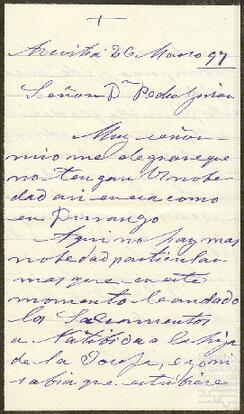 +
26 Marzo 97
Señor Dn Pedro
Muy señor
mio me alegrare que
no tengan Vnobe
dad asi en esa como
en Durango
Aqui no hay mas
nobedad particular
mas que en este
momento le an dado
los Sacramentos
a Natibida la hija
de la Josefa, e y o ni
sabia que estubiese